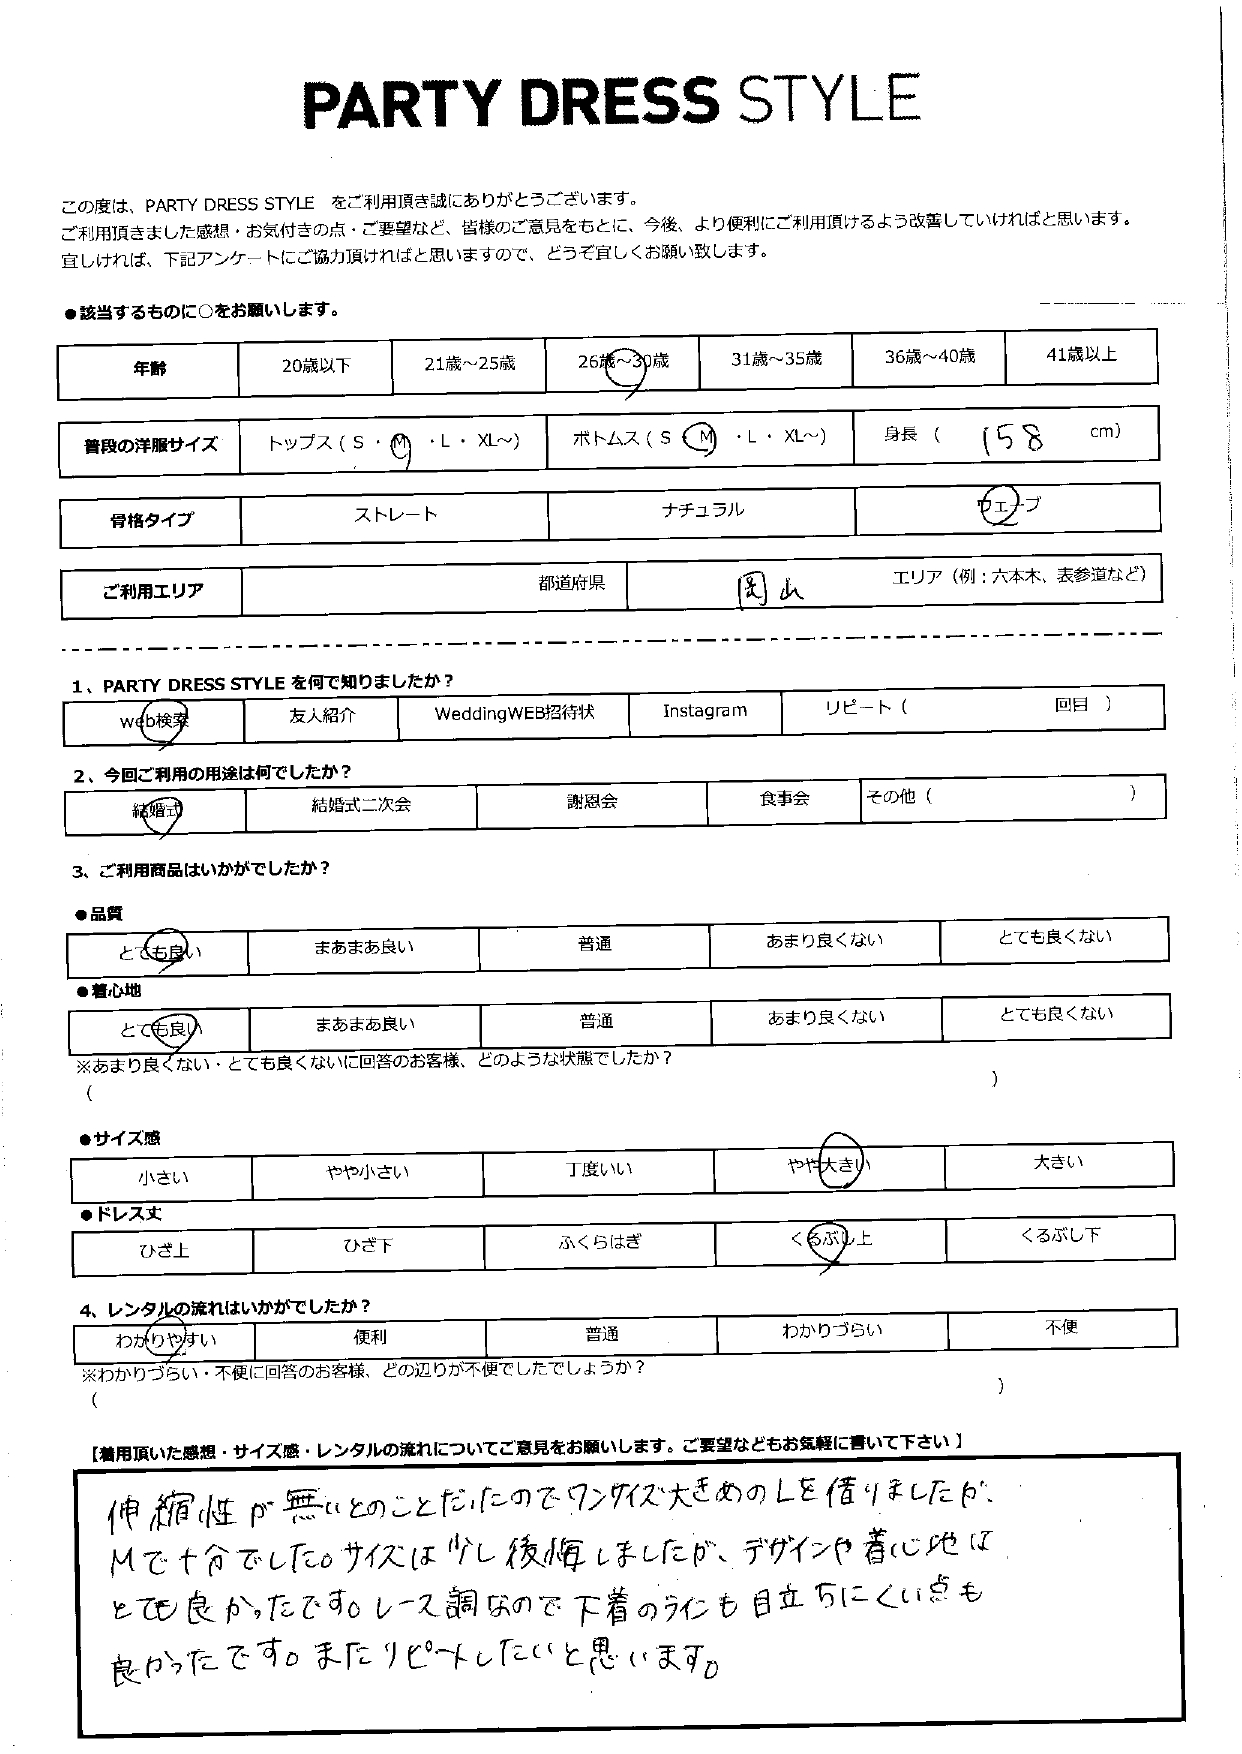 PARTY DRESS STYLE
この度は、PARTY DRESS STYLE をご利用頂き誠にありがとうございます。
ご利用頂きました感想・お気付きの点・ご要望など、皆様のご意見をもとに、今後、より便利にご利用頂けるよう改善していければと思います。
宜しければ、下記アンケートにご協力頂ければと思いますので、どうぞ宜しくお願い致します。
●該当するものに○をお願いします。
年齢 20歳以下 21歳～25歳 26歳～30歳 31歳～35歳 36歳～40歳 41歳以上
普段の洋服サイズ トップス（ S ・ M ・L ・ XL～） ボトムス（ S ・ M ・L ・ XL～） 身長 （ 158 cm）
骨格タイプ ストレート ナチュラル ウェーブ
ご利用エリア 都道府県 岡山 エリア（例：六本木、表参道など）
1、PARTY DRESS STYLE を何で知りましたか？
web検索 友人紹介 WeddingWEB招待状 Instagram リピート（ 回目 ）
2、今回ご利用の用途は何でしたか？
結婚式 結婚式二次会 謝恩会 食事会 その他（ ）
3、ご利用商品はいかがでしたか？
●品質
とても良い まあまあ良い 普通 あまり良くない とても良くない
●着心地
とても良い まあまあ良い 普通 あまり良くない とても良くない
※あまり良くない・とても良くないに回答のお客様、どのような状態でしたか？
（ ）
●サイズ感
小さい やや小さい 丁度いい やや大きい 大きい
●ドレス丈
ひざ上 ひざ下 ふくらはぎ くるぶし上 くるぶし下
4、レンタルの流れはいかがでしたか？
わかりやすい 便利 普通 わかりづらい 不便
※わかりづらい・不便に回答のお客様、どの辺りが不便でしたでしょうか？
（ ）
【着用頂いた感想・サイズ感・レンタルの流れについてご意見をお願いします。ご要望などもお気軽に書いて下さい 】
伸縮性が無いとのことだったのでワンサイズ大きめのLを借りましたが、
Mで十分でした。サイズは少し後悔しましたが、デザインや着心地は
とても良かったです。レース調なので下着のラインも目立ちにくい点も
良かったです。またリピートしたいと思います。